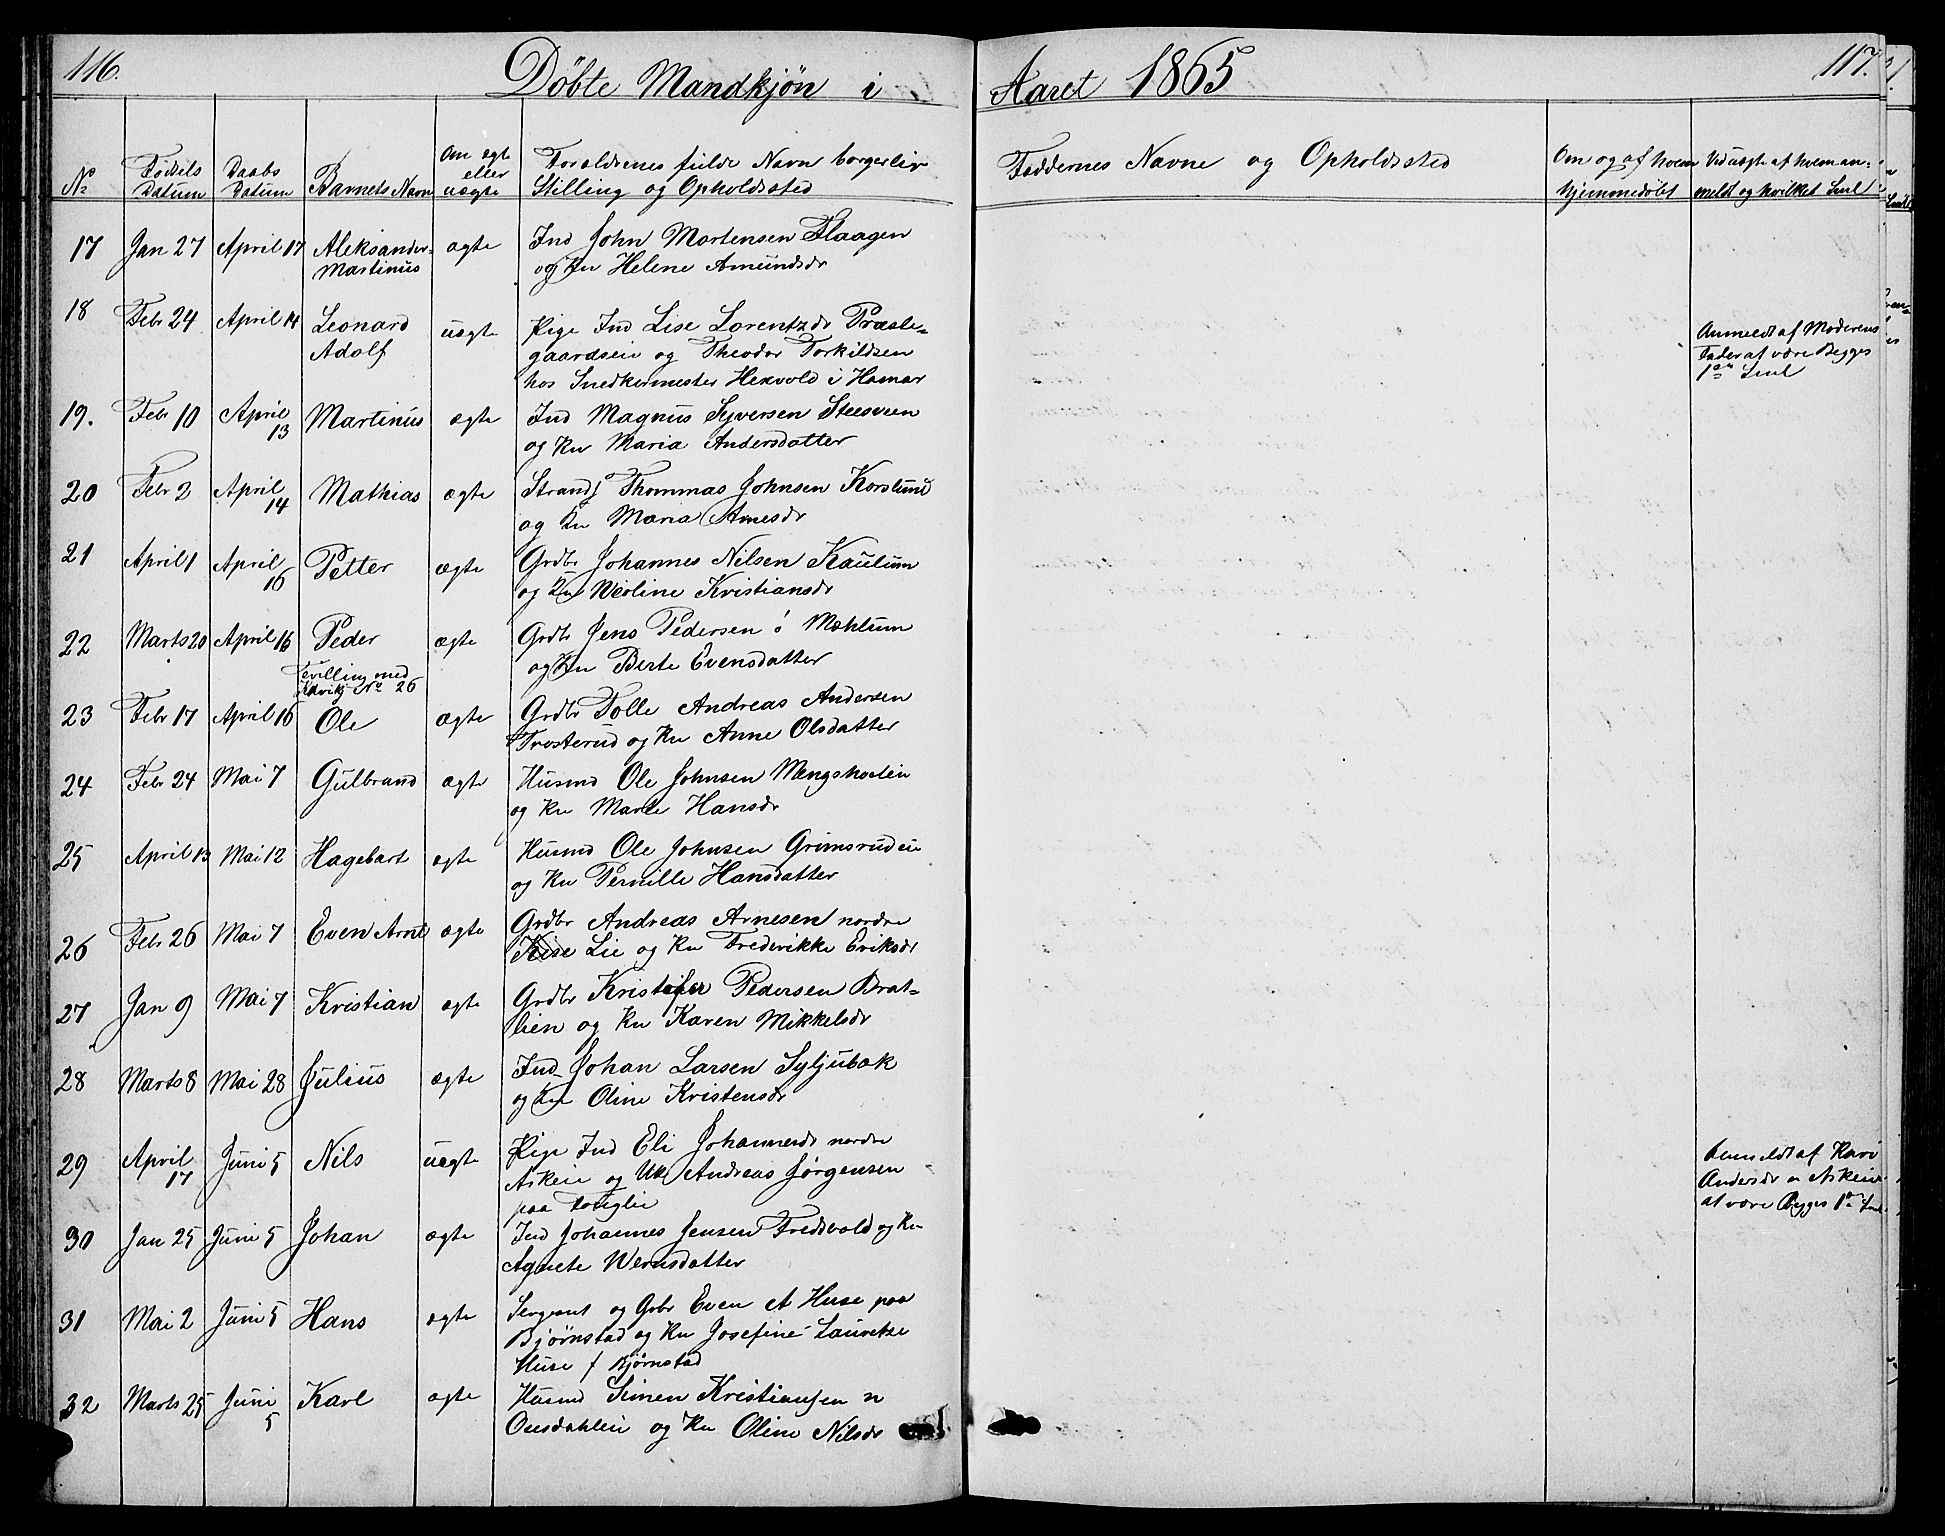 116.
Døbte Mandkjøn i
Aaret 1865
117.
No
Fødsels Datum
Daabs Datum
Barnets Navn
Om ægte eller uægte
Forældrenes fulde Navn borgerlig
Stilling og Opholdssted
Faddernes Navne og Opholdssted
Om og af hvem
hjemmedøbt
Ved uægte af hvem an-
meldt og hvilket Leul
17 Jan 27 April 17 Aleksander ægte Ind John Martensen Flaagen
Martinus og Ku Helene Amundsdr
18 Febr 24 April 14 Leonard uægte Pige Ind Lise Lorentzdr Præste-
Adolf gaardseie og Theodor Torkildsen
hos Snedkermester Hekvold i Hamar
Anmeldt af Moderens
Fader at være Begges
1ste Leul
19. Febr 10 April 13 Martinus ægte Ind Magnus Syversen Steesveen
og Ku Maria Andersdatter
20 Febr 2 April 14 Mathias ægte Strands Thommas Johnsen Korslund
og Ku Maria Arnesdr
21 April 1 April 16 Petter ægte Grdbr Johannes Nilsen Kaulum
og Ku Nicoline Kristiansdr
22 Marts 20 April 16 Peder ægte Grdbr Jens Pedersen Mæhlum
og Ku Berte Evensdatter
Tvilling med
No 26
23 Febr 17 April 16 Ole ægte Grdbr Tolle Andreas Andersen
Trosterud og Ku Anne Olsdatter
24 Febr 24 Mai 7 Gulbrand ægte Husmd Ole Johnsen Mengshoelein
og Ku Marte Hansdr
25 April 13 Mai 12 Hagebart ægte Husmd Ole Johnsen Grimsrudeie
og Ku Pernille Hansdatter
26 Febr 26 Mai 7 Even Arne ægte Grdbr Andreas Arnesen nordre
Kise Lie og Ku Frederikke Eriksdr
27 Jan 9 Mai 7 Kristian ægte Grdbr Kristofer Pedersen Brat-
lien og Ku Karen Mikkelsdr
28 Marts 8 Mai 28 Julius ægte Ind Johan Larsen Syljubak
og Ku Oline Kristensdr
29 April 17 Juni 5 Nils uægte Pige Ind Eli Johannesdr nordre
Askeie og Uk Andreas Jørgensen
paa
Anmeldt af Kari
Andersdr n Askeie
at være Begges 1ste Leul
30 Jan 25 Juni 5 Johan ægte Ind Johannes Jensen Fredsvold og Ku
Agnete Wernsdatter
31 Mai 2 Juni 5 Hans ægte Sergeant og Grbr Even A Huse paa
Bjørnstad og Ku Josefine Lauretze
Huse f Bjørnstad
32 Marts 25 Juni 5 Karl ægte Husmd Simen Kristiansen n
Ousdahleie og Ku Oline Nilsdr